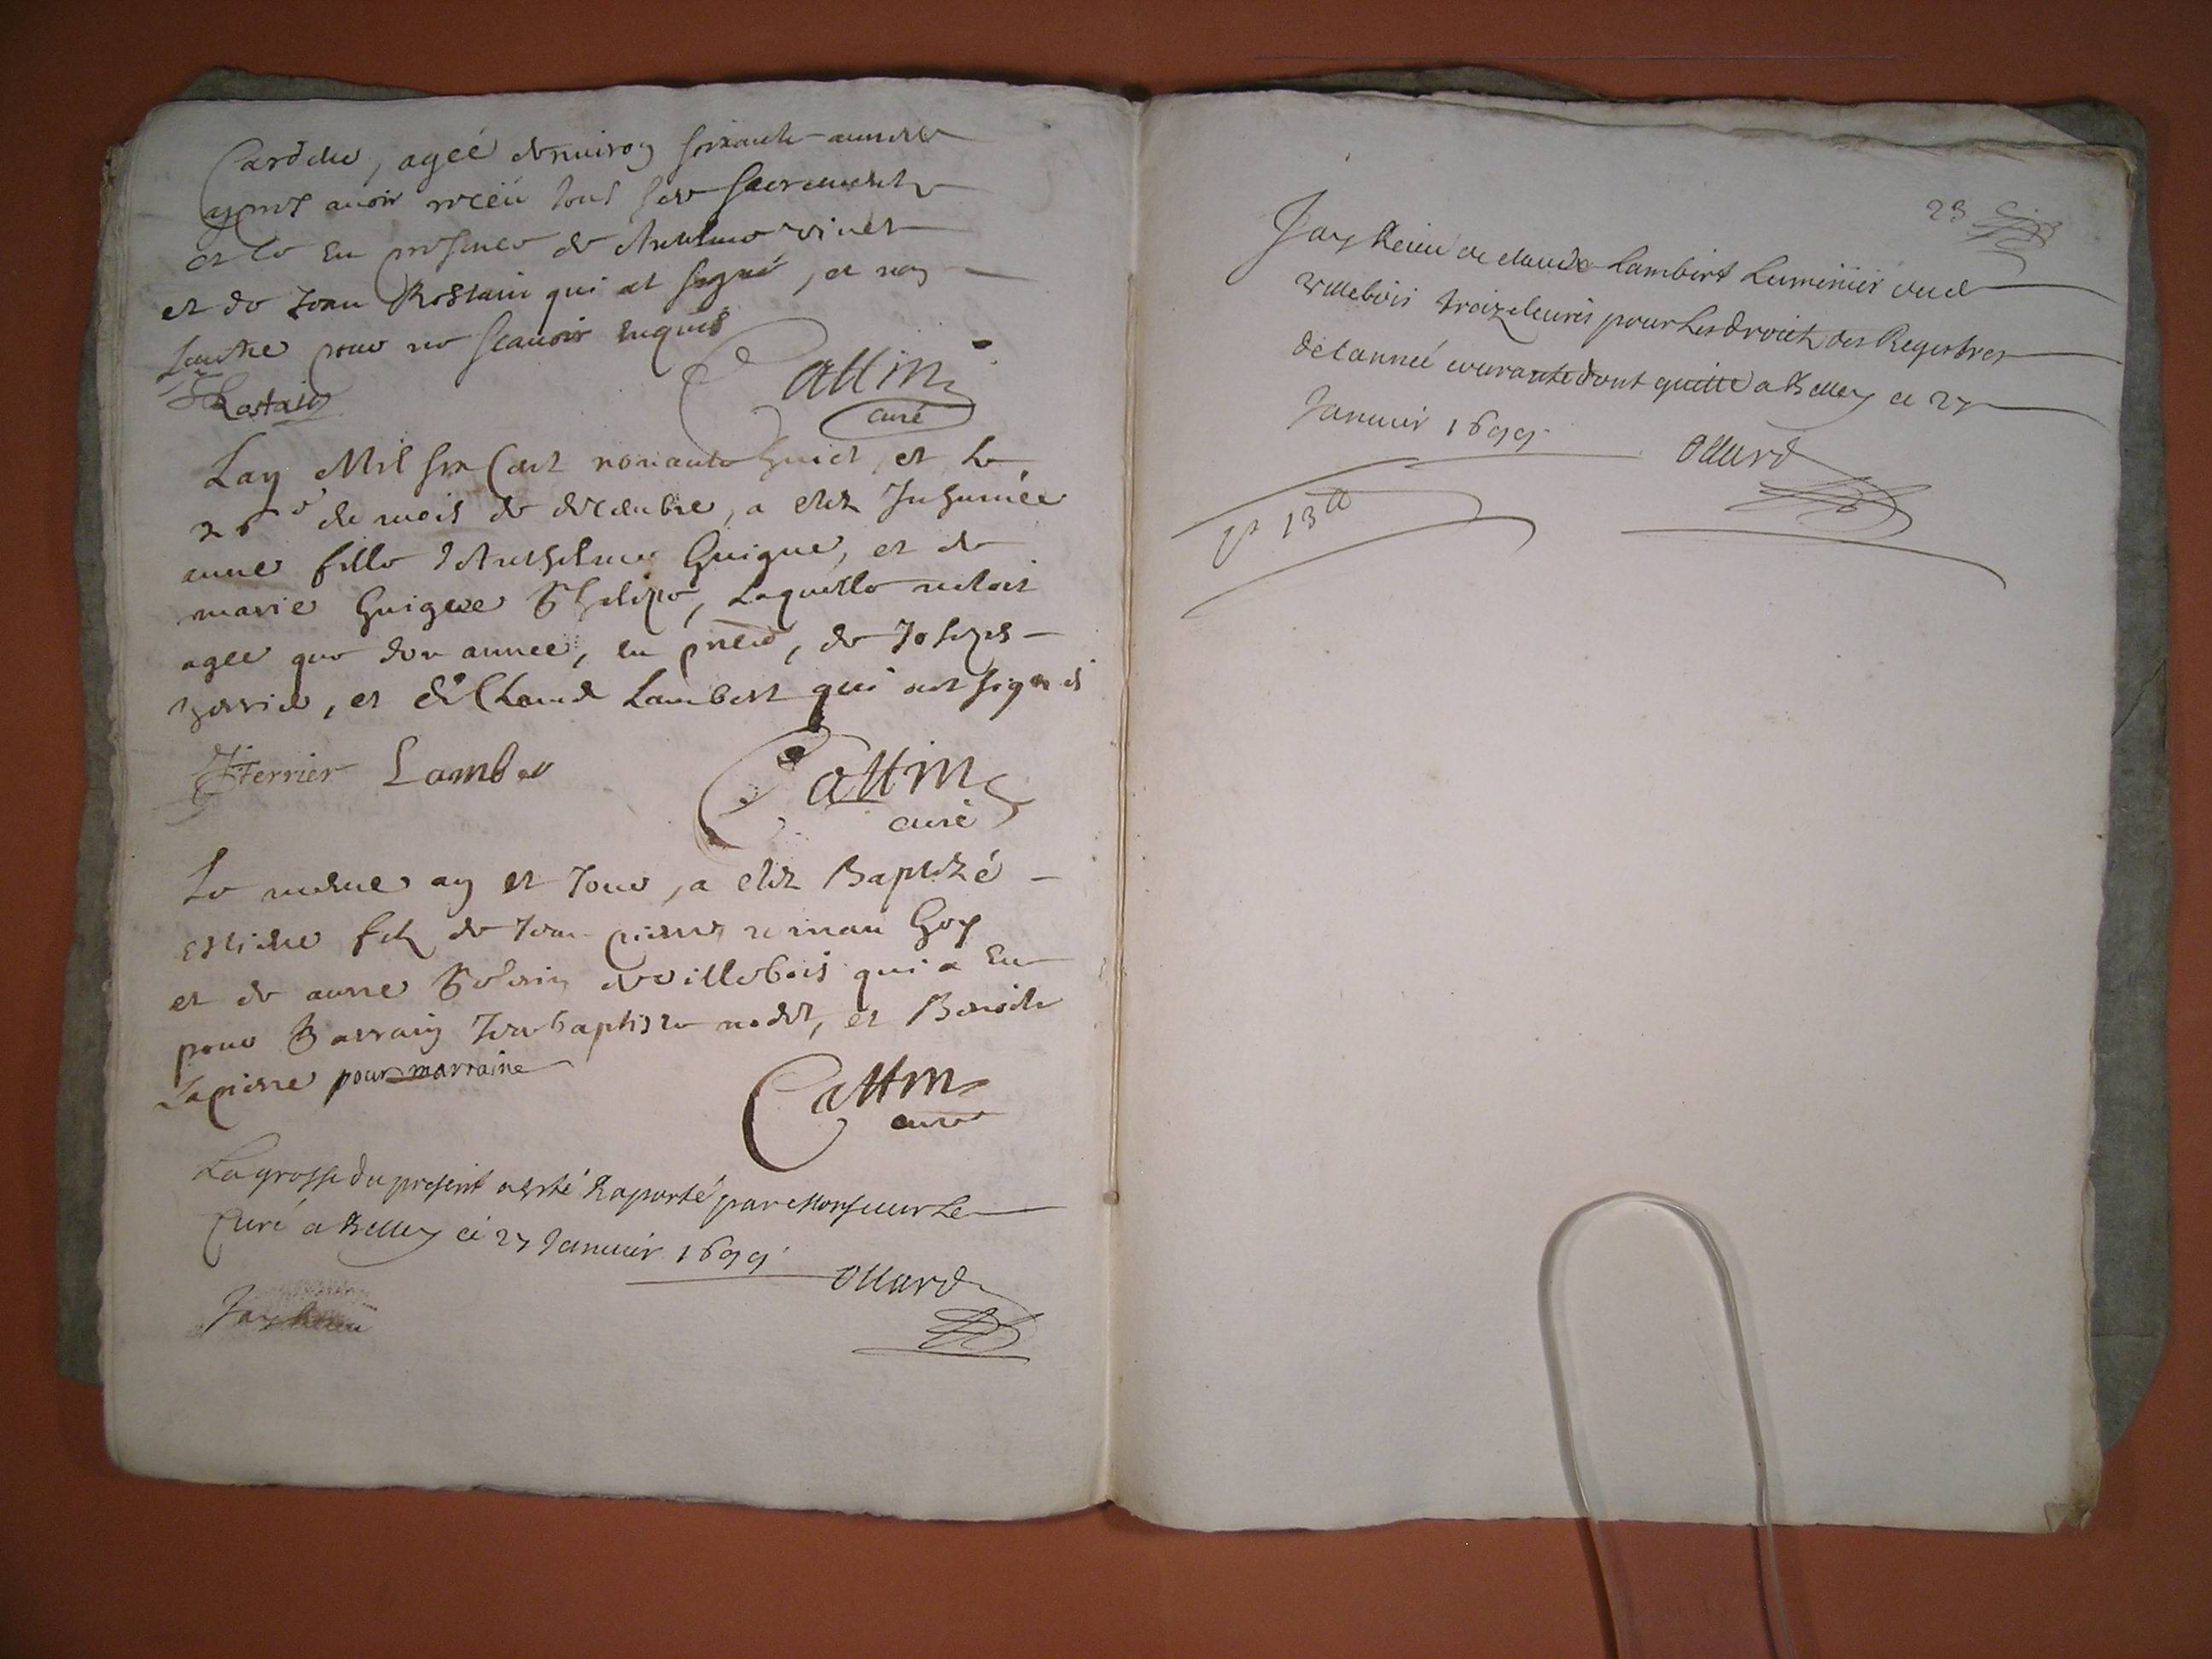 agée denuiron soixante annees
apres auoir receu tous ses sacrements
en presence de Anthelme vinet
et de Jean Rostain qui at signé, et non
lautre pour ne scauoir enquis
Rostaing
Cattin
curé
Lan Mil six Cent nonante huict, et le
26e du mois de decembre, a esté Inhumée
anne fille d'Anthelme Guigue, et de
marie Guigue laquelle nestoit
agee que dun annee, en pnce, de Joseph
et de Claude Lambert qui ont signés
Ferrier Lambert
Cattin
curé
Le mesme an et Jour, a esté Baptizé
estiene filz de Jean pierre Goy
et de anne de villebois qui a Eu
pour Parrain Jean baptiste et Benoite
Lapierre pour marraine
Cattin
curé
La grosse du present a esté Raporté par Monsieur Le
Curé a Belley ce 27 Januier 1699
Ollard
Jay Receu
23
Jay Receu de claude Lambert Luminier dud
villebois treize liures pour Les droict des Registres
de Lanneé courante dont quitte a Belley ce 27
Januier 1699
Ollard
13 ll